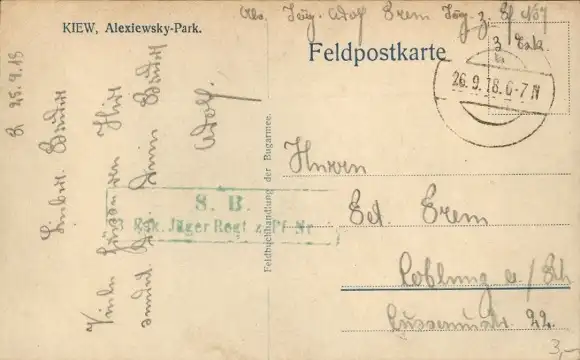 KIEW, Alexiewsky-Park.
Abs. Jäg. Adolf Exem Jäg. z. Pf
3 Esk.
Feldpostkarte
26.9.18.6-7 N
25.9.18
Lieber Bruder
Viele Grüsse
sendet Dir Dein Bruder
Adolf.
S. B.
Esk. Jäger Regt. z. Pf. Nr.
Feldbuchhandlung der Bugarmee.
Herrn
Ed. Exem
Coblenz a/Rh
22.
3,-